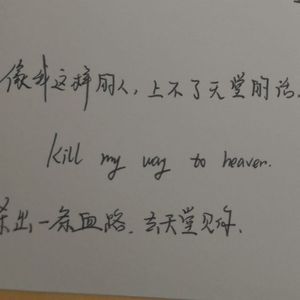 像我这样的人，上不了天堂的话.
Kill my way to heaven.
杀出一条血路. 去天堂见你.